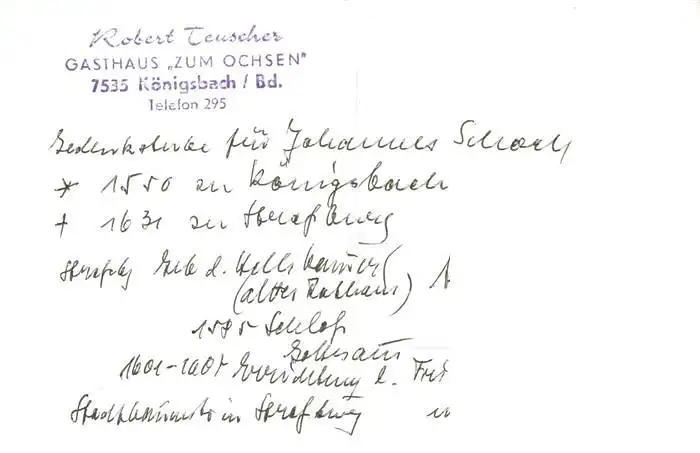 Robert Teuscher
GASTHAUS „ZUM OCHSEN"
7535 Königsbach / Bd.
Telefon 295
Gedenkstube für Johannes Schoch
* 1550 zu Königsbach
† 1631 zu Straßburg
Erb. d.
(altes Rathaus)
1585 Schloß
Gottesaue
1601-1607 Errichtung d.
Stadtbaumstr in Straßburg